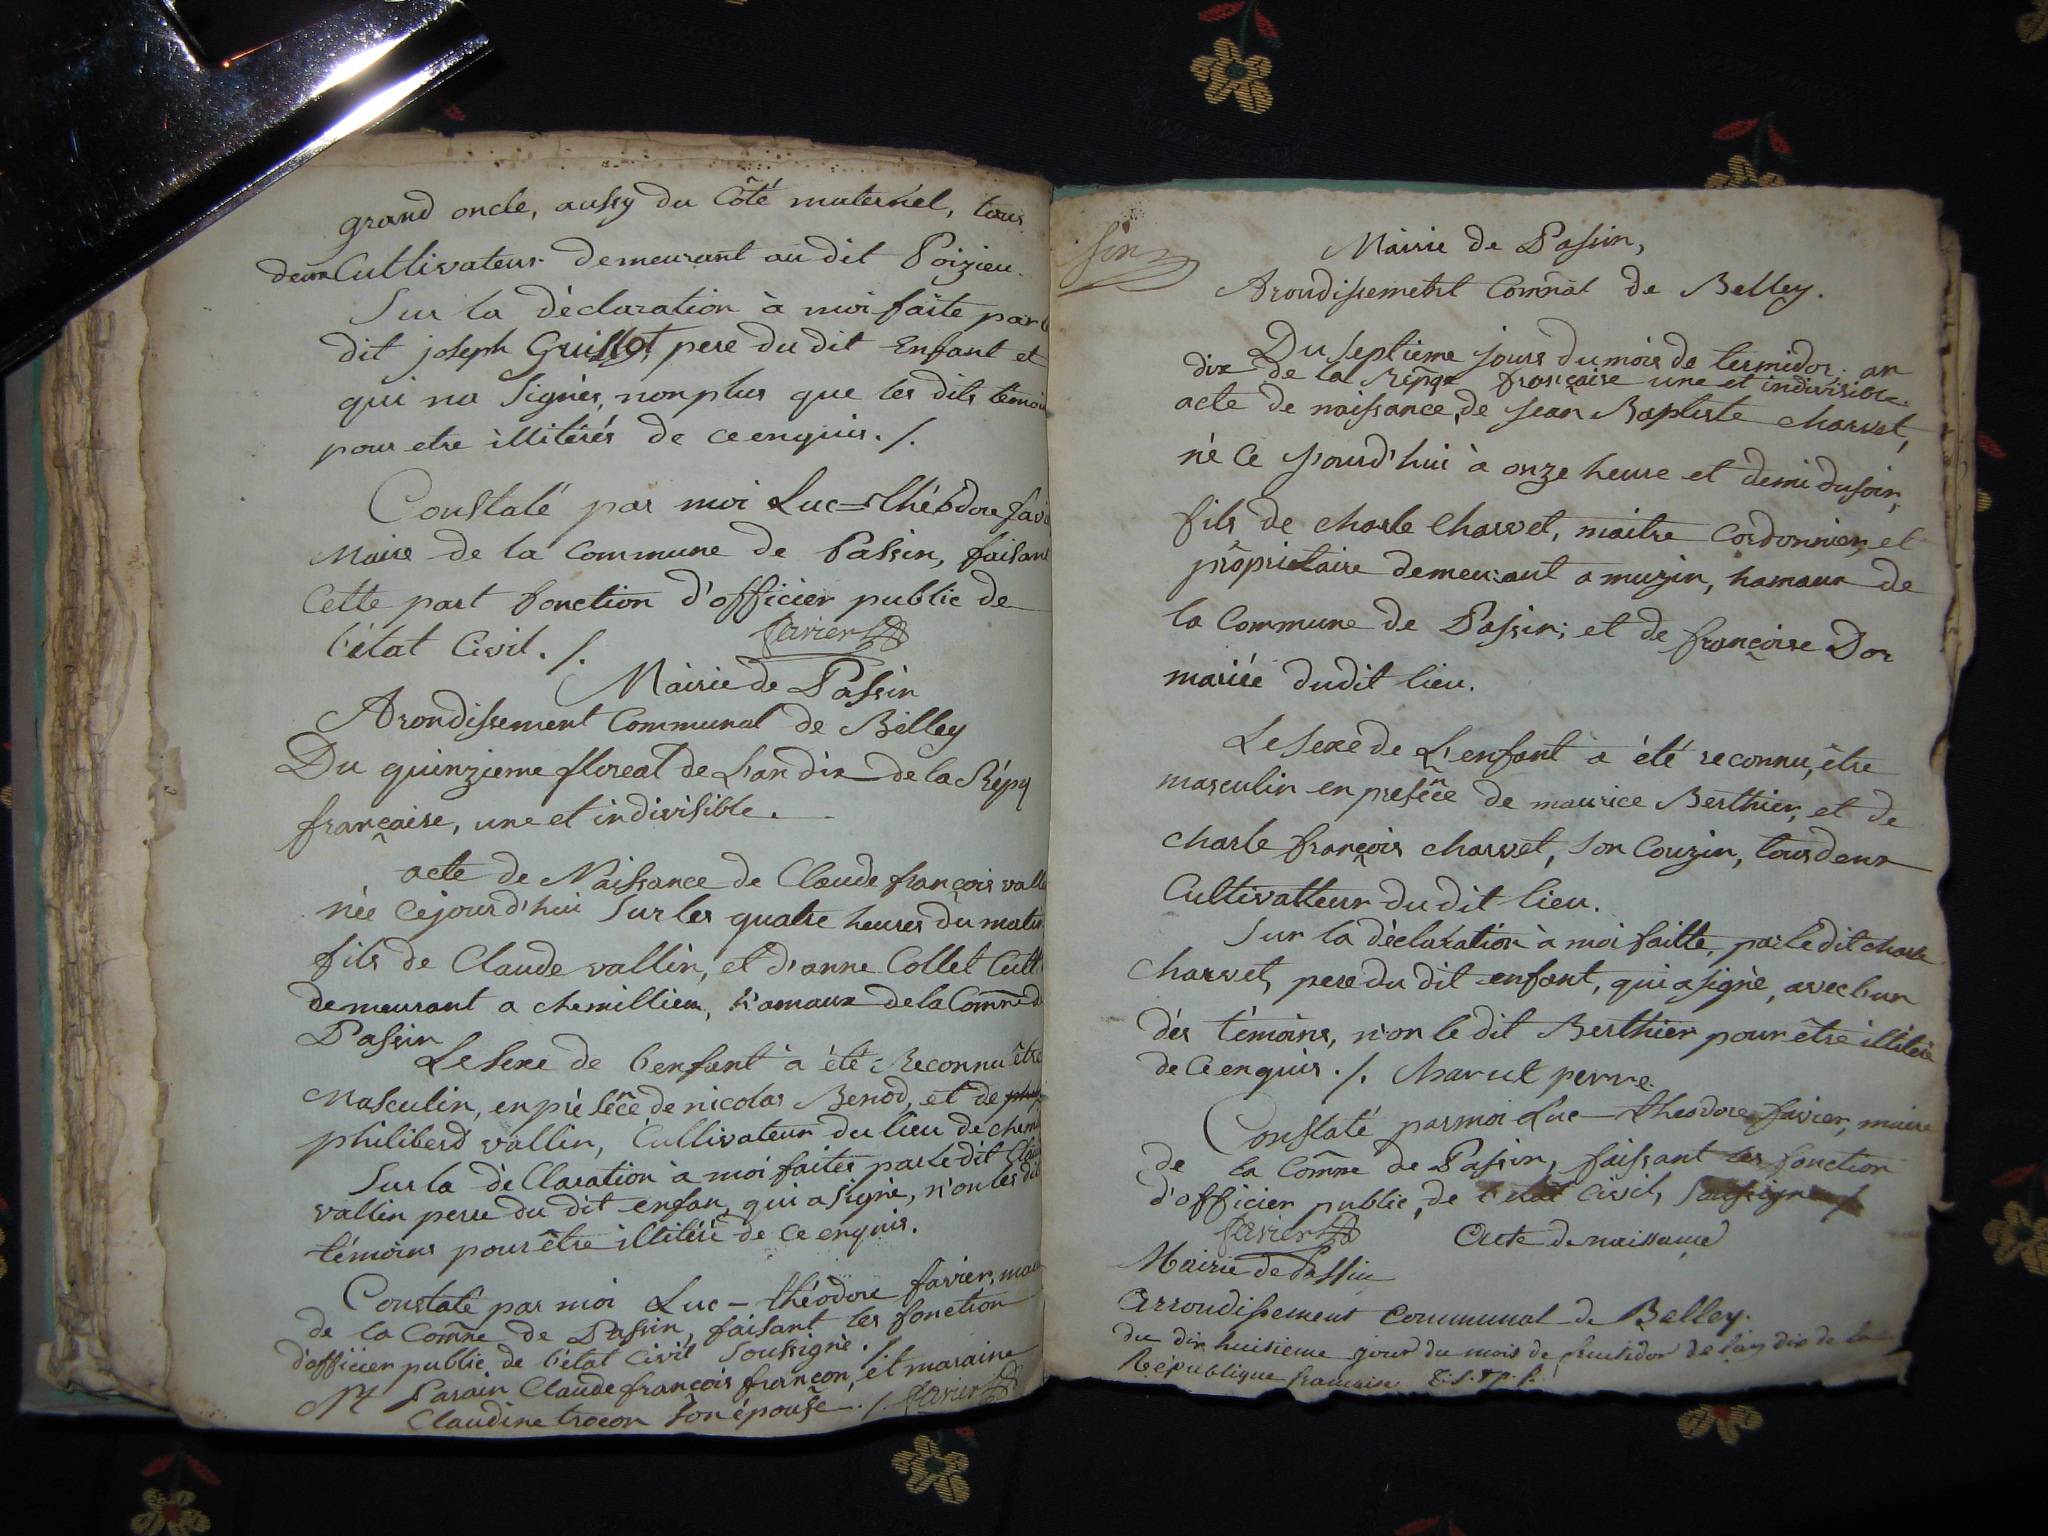 grand oncle, aussy du Côté maternel, tous
deux Cultivateur demeurant au dit Poizieu.
Sur la déclaration à moi faite par
dit joseph Guillot, pere du dit Enfant et
qui na Signés, non plus que les dits témoi
pour etre illitérés de ce enquis. /.
Constaté par moi Luc=théodore favi
Maire de la Commune de Passin, faisant
Cette part fonction d'officier public de
l'état Civil. /. favier
Mairie de Passin
Arondissement Communal de Billey
Du quinzieme floreal de L'an dix de la Répq
française, une et indivisible.
acte de Naissance de Claude françois valli
née Cejourd'hui Sur les quatre heures du matin
fils de Claude vallin, et d'anne Collet Cult
demeurant a chemillieu, h'amaux de la Comne d
Passin
Le Sexe de l'enfant à été Reconnu être
Masculin, en présce de nicolas Benod, et de
philiberd vallin, Cultivateur du lieu de chemi
Sur la déClaration à moi faites par le dit Claud
vallin pere du dit enfan, qui a signé, n'on les dit
témoins pour être illitéré de Ce enquis.
Constaté par moi Luc - théodore favier, mai
de la Comne de Passin, faisant les fonction
d'officier public de l'état Civil Soussigné. /.
Parain Claude françois françon, et maraine
Claudine trocon Son épouse. /. favier
Mairie de Passin,
Arondissement Comnal de Belley.
Du Septieme jours du mois de termidor, an
dix de la Répqe française une et indivisible.
acte de naissance, de jean Baptiste charvet,
né Ce jourd'hui à onze heure et demi du soir,
fils de charle Charvet, maitre Cordonnier, et
propriétaire demeurant a muzin, hamaux de
la Commune de Passin; et de françoise Dor
mariée dudit lieu.
Le Sexe de L'enfant à été reconnu, être
masculin en présce de maurice Berthier, et de
charle françois charvet, Son Couzin, tous deux
Cultivatteur du dit lieu.
Sur la déclaration à moi faitte, par le dit charle
Charvet, pere du dit enfant, qui a signé, avec l'un
dés témoins, n'on le dit Berthier pour être illitéré
de Ce enquis. /. Charvet perre
Constaté par moi Luc - theodore favier, maire
de la Comne de Passin, faissant les fonction
d'officier public, de l'etat Civil, Soussigné /.
favier Acte de naissance
Mairie de Passin
Arrondissement Communal de Belley.
du dix huitieme jour du mois de fructidor de l'an dix de la
République francaise